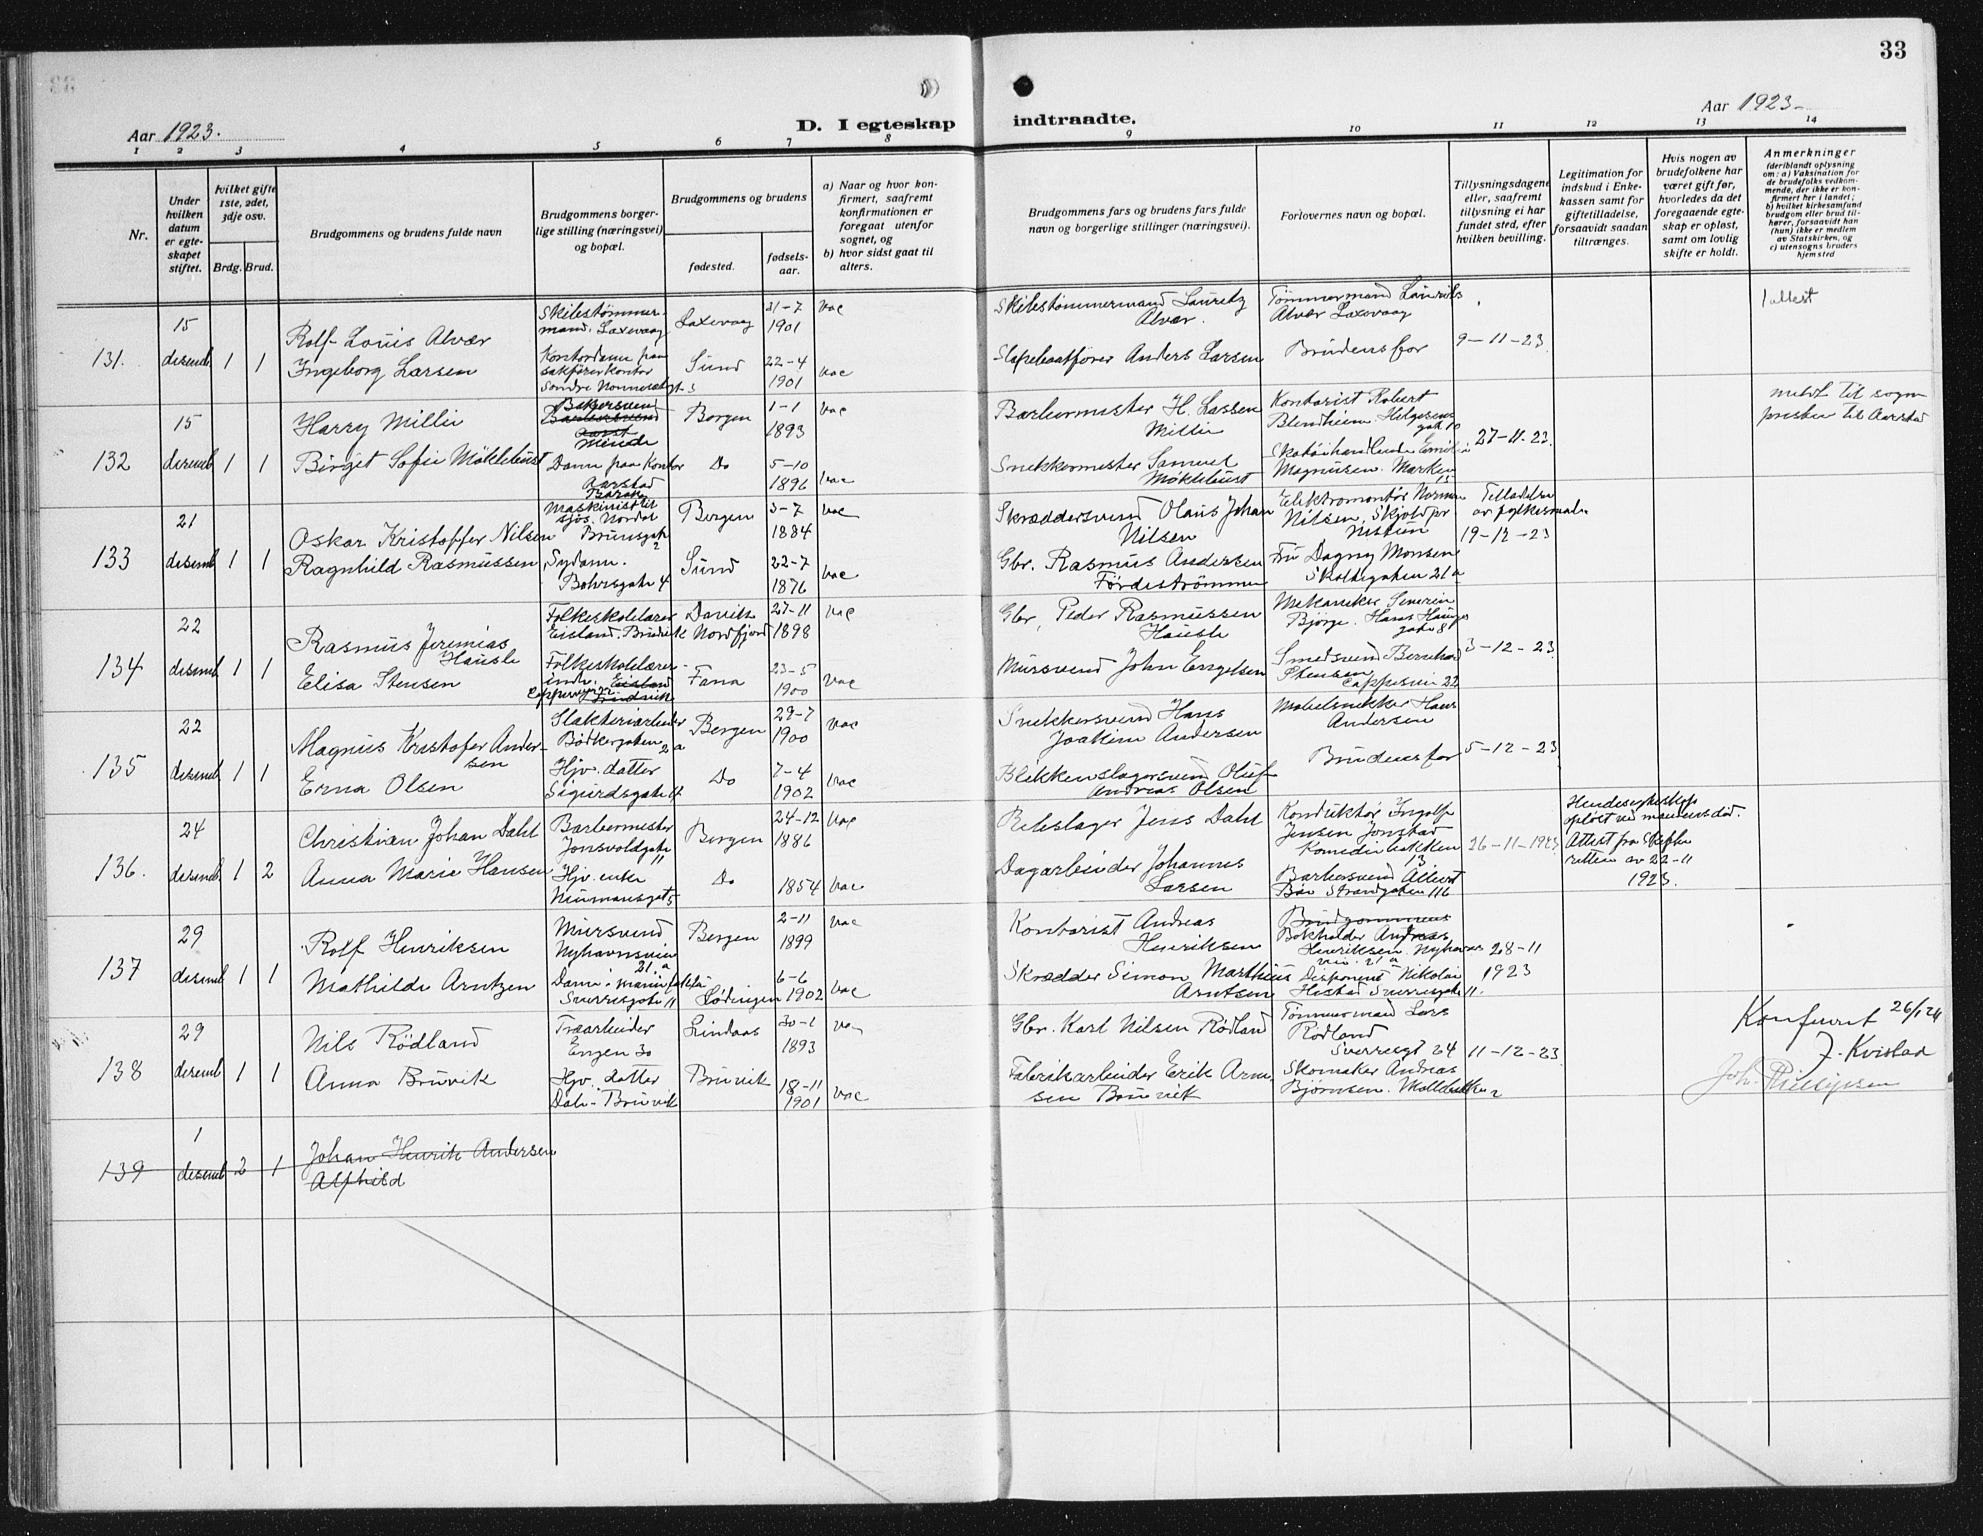 33
Aar 1923.
D. I egteskap
indtraadte.
Aar 1923-
1 2 3 4 5 6 7 8 9 10 11 12 13 14
Nr.
Under hvilken datum er egteskapet stiftet.
hvilket gifte 1ste, 2det, 3dje osv.
Brdg. Brud.
Brudgommens og brudens fulde navn
Brudgommens borgerlige stilling (næringsvei) og bopæl.
Brudgommens og brudens
fødested.
fødselsaar.
a) Naar og hvor konfirmert, saafremt konfirmationen er foregaat utenfor sognet, og
b) hvor sidst gaat til alters.
Brudgommens fars og brudens fars fulde navn og borgerlige stillinger (næringsvei).
Forlovernes navn og bopæl.
Tillysningsdagene eller, saafremt tillysning ei har fundet sted, efter hvilken bevilling.
Legitimation for indskud i Enkekassen samt for giftetilladelse, forsaavidt saadan tiltrænges.
Hvis nogen av brudefolkene har været gift før, hvorledes da det foregaaende egteskap er opløst, samt om lovlig skifte er holdt.
Anmerkninger
(deriblandt oplysning om: a) Vaksination for de brudefolks vedkommende, der ikke er konfirmert her i landet; b) hvilket kirkesamfund brudgom eller brud tilhører, forsaavidt han (hun) ikke er medlem av Statskirken, og c) utensogns bruders hjemsted
131. 15 desemb. 1 1
Rolf Louis Alvær
Skibstømmermand. Laxevaag
Laxevaag
31-7 1901
vac
Skibstømmermand Lauritz Alvær.
Tømmermand Lauritz Alvær Laxevaag
9-11-23
1 attest
Ingeborg Larsen
Kontordame paa sakførerkontor
Sund
22-4 1901
vac
Slæpebaatfører Anders Larsen
Brudens far
132 15 desemb 1 1
Harry Millie
Bakersvend
Bergen
1-1 1893
vac
Barbermester H. Lassen Millie
Kontorist Robert Blendheim. Helgesens gate
27-11-23
meldt til sogneprsten til Aarstad
Birgit Sofie Møklebust
Dame paa Kontor Aarstad
Do
5-10 1896
vac
Snekkermester Samuel Møklebust
Magnusen. Marken
133 21 desemb 1 1
Oskar Kristoffer Nilsen
Maskinist til sjøs. Nordal Brunsgate 2
Bergen
3-7 1884
vac
Skræddersvend Olaus Johan Nilsen
Elektromontør Nilsen
Tilladelse av fylkesmaln
19-12-23
Ragnhild Rasmussen
Sydame. Bohrsgate 4
Sund
22-7 1876
vac
Gbr. Rasmus Andersen Førdestrømmen
Fru Dagny Monsen Skoltegaten 21a
134 22 desemb 1 1
Rasmus Jeremias Hausle
Folkeskolelærer
Davik Nordfjord
27-11 1898
vac
Gbr. Peder Rasmussen Hausle
Mekaniker Severin Bjørge. Hans Hauges gate 8
3-12-23
Elisa Stensen
Folkeskolelærerinde.
Fana
23-5 1900
vac
Mursvend John Engelsen
Smedsvend Bernhard Stensen Cappesvei 22
135 22 desemb. 1 1
Magnus Kristofer Andersen
Slakteriarbeider Bødkergaten 2a
Bergen
29-7 1900
vac
Snekkersvend Hans Joakim Andersen
Møbelsnekker Hans Andersen
5-12-23
Erna Olsen
Hjv. datter Sigurdsgate 4
Do
7-4 1902
vac
Blikkenslagersvend Oluf Andreas Olsen
Brudens far
136. 24 desemb. 1 2
Christian Johan Dahl
Barbermester Jonsvoldgate 11
Bergen
24-12 1886
vac
Rebslager Jens Dahl
Konduktør Ingolf Jensen Jonstad Komediebakken 13
26-11-1923
Hendes egteskap opløst ved mandens død. Attest fra Skifteretten av 22-11 1923.
Anna Marie Hansen
Hjv. enke Neumansgt 5
Do
1854
vac
Dagarbeider Johannes Larsen
Barbersvend Albert Bøe Strandgaten 116
137 29 desemb 1 1
Rolf Henriksen
Mursvend Nyhavnsveien 21.a
Bergen
2-11 1899
vac
Kontorist Andreas Henriksen
Brudgommens
Bokholder Andreas Henriksen. Nyhavnsvei. 21 a
28-11 1923
Mathilde Arntzen
Sverresgate 11
Lødingen
6-6 1902
vac
Skrædder Simon Marthius Arntsen
Disponent Nikolai Hestad Sverresgate 11.
138 29 desemb 1 1
Nils Rödland
Træarbeider Engen 30
Lindaas
30-1 1893
vac
Gbr. Karl Nilsen Rödland
Tømmermand Lars Rödland Sverresgt 24
11-12-23
Anna Bruvik
Hjv. datter Dale-Bruvik
Bruvik
18-11 1901
vac
Fabrikarbeider Erik Arnesen Bruvik
Skomaker Andreas Bjørnsen.
Konferert 26/1 24
J. Kvistad
139 1 desemb 2 1
Johan Henrik Andersen
Alfhild